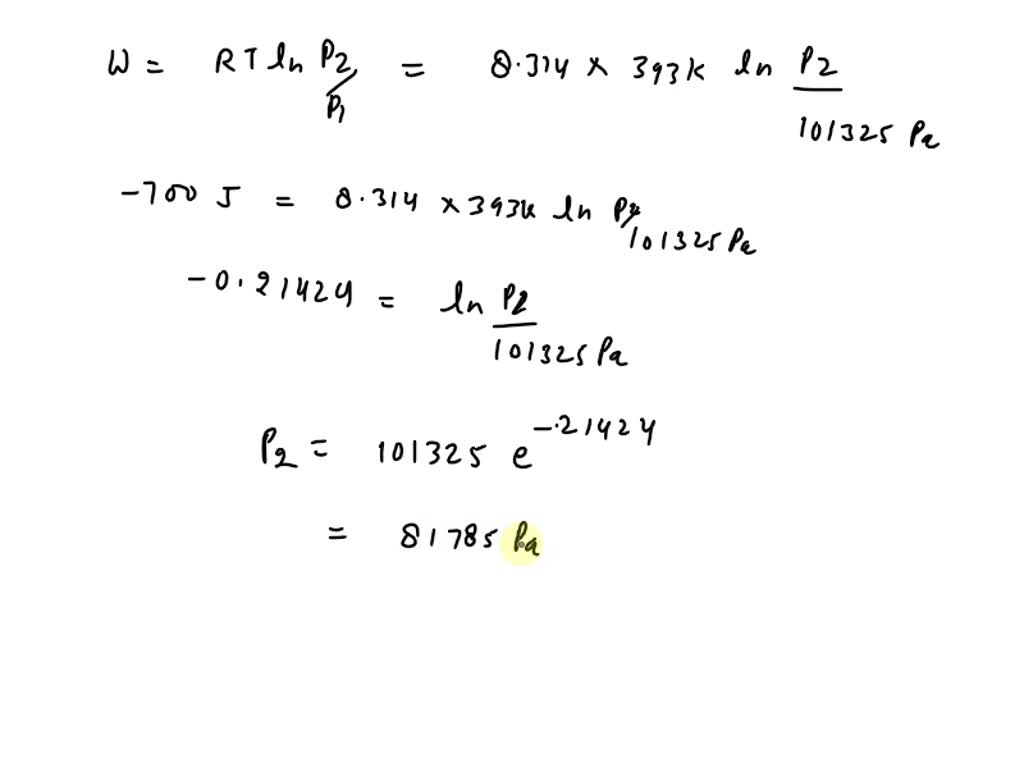 W = RT ln P2/P1 = 8.314 × 393K ln P2/101325 Pa
-700 J = 8.314 × 393K ln P2/101325 Pa
-0.21424 = ln P2/101325 Pa
P2 = 101325 e^-.21424
= 81785 Pa